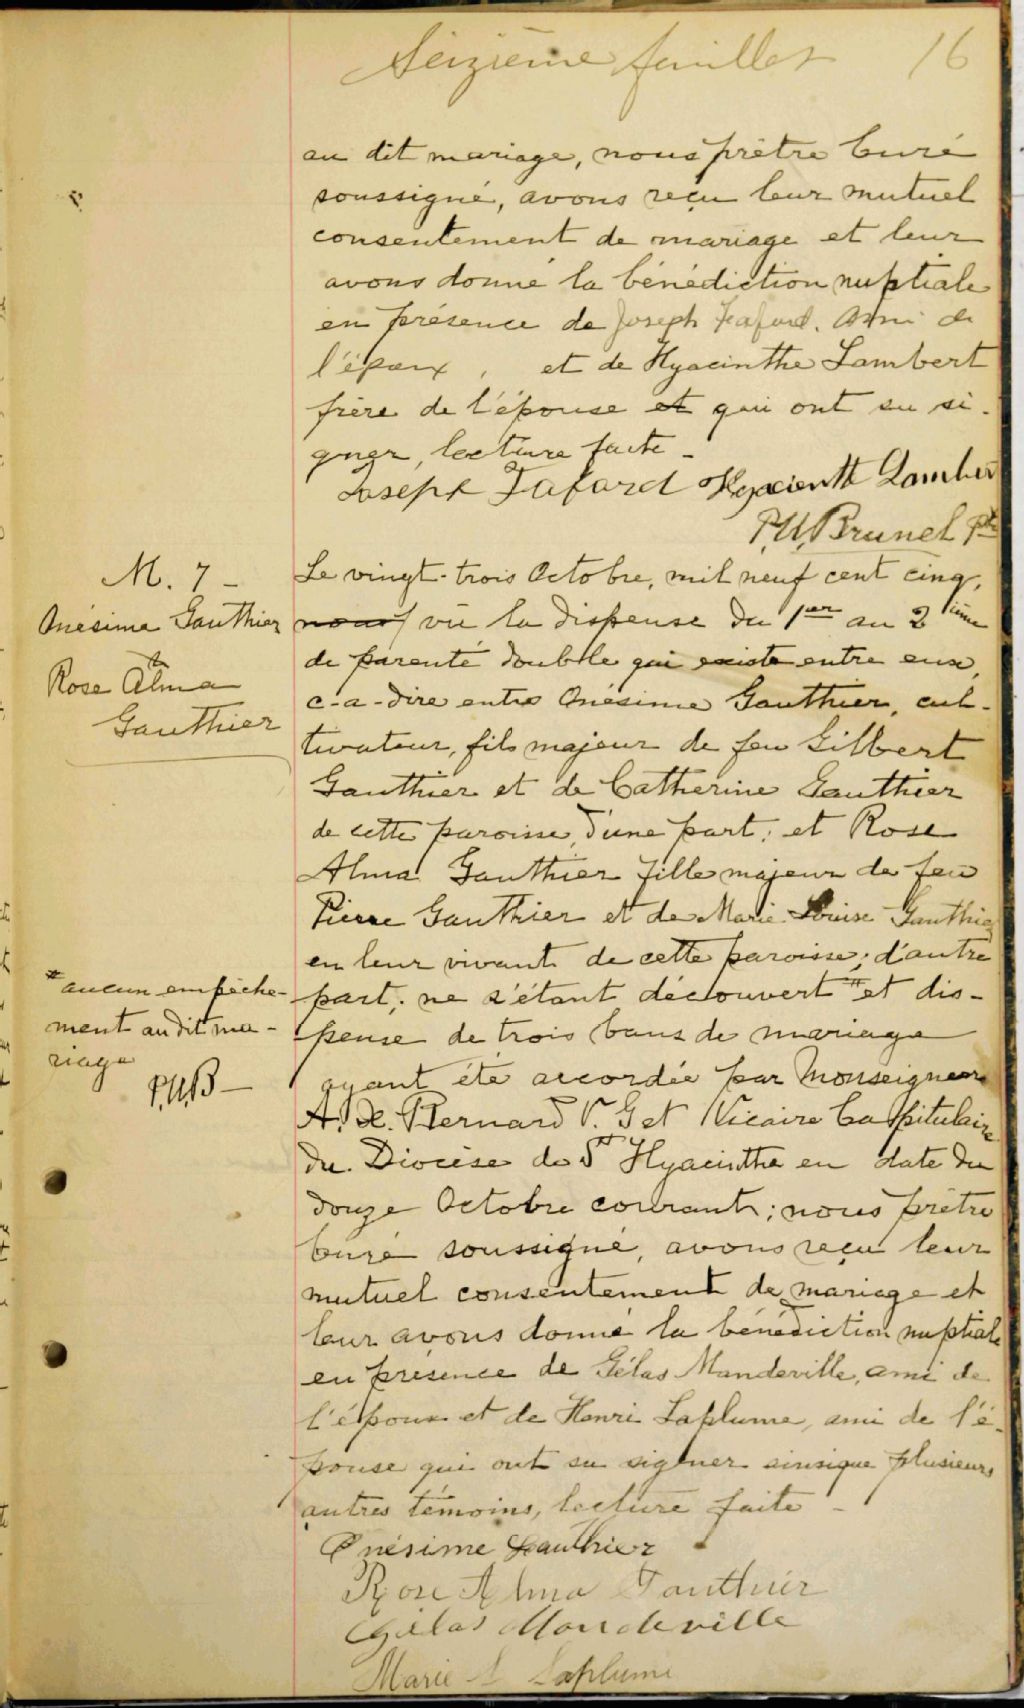 Seizième feuillet 16
au dit mariage, nous prêtre Curé
soussigné, avons reçu leur mutuel
consentement de mariage et leur
avons donné la bénédiction nuptiale
en présence de Joseph Fafard. Ami de
l'époux, et de Hyacinthe Lambert
frère de l'épouse et qui ont su si-
gner, lecture faite -
Joseph Fafard Hyacinthe Lambert
P.U. Brunel Ptre
M. 7 -
Onésime Gauthier
&
Rose Alma
Gauthier
Le vingt-trois Octobre, mil neuf cent cinq,
nous vu la dispense du 1er au 2ième
de parenté double qui existe entre eux,
c-a-dire entre Onésime Gauthier, cul-
tivateur, fils majeur de feu Gilbert
Gauthier et de Catherine Gauthier
de cette paroisse, d'une part; et Rose
Alma Gauthier fille majeur de feu
Pierre Gauthier et de Marie-Louise Gauthier
en leur vivant de cette paroisse; d'autre
part; ne s'étant découvert # et dis-
pense de trois bans de mariage
# aucun empêche-
ment au dit ma-
riage
P.U.B -
ayant été accordée par Monseigneur
A. X. Bernard V. G et Vicaire Capitulaire
du Diocèse de St Hyacinthe en date du
douze Octobre courant; nous prêtre
Curé soussigné, avons reçu leur
mutuel consentement de mariage et
leur avons donné la bénédiction nuptiale
en présence de Gélas Mandeville, ami de
l'époux et de Henri Laplume, ami de l'é-
pouse qui ont su signer ainsique plusieurs
autres témoins, lecture faite -
Onésime Gauthier
Rose Alma Gauthier
Gélas Mandeville
Marie Laplume